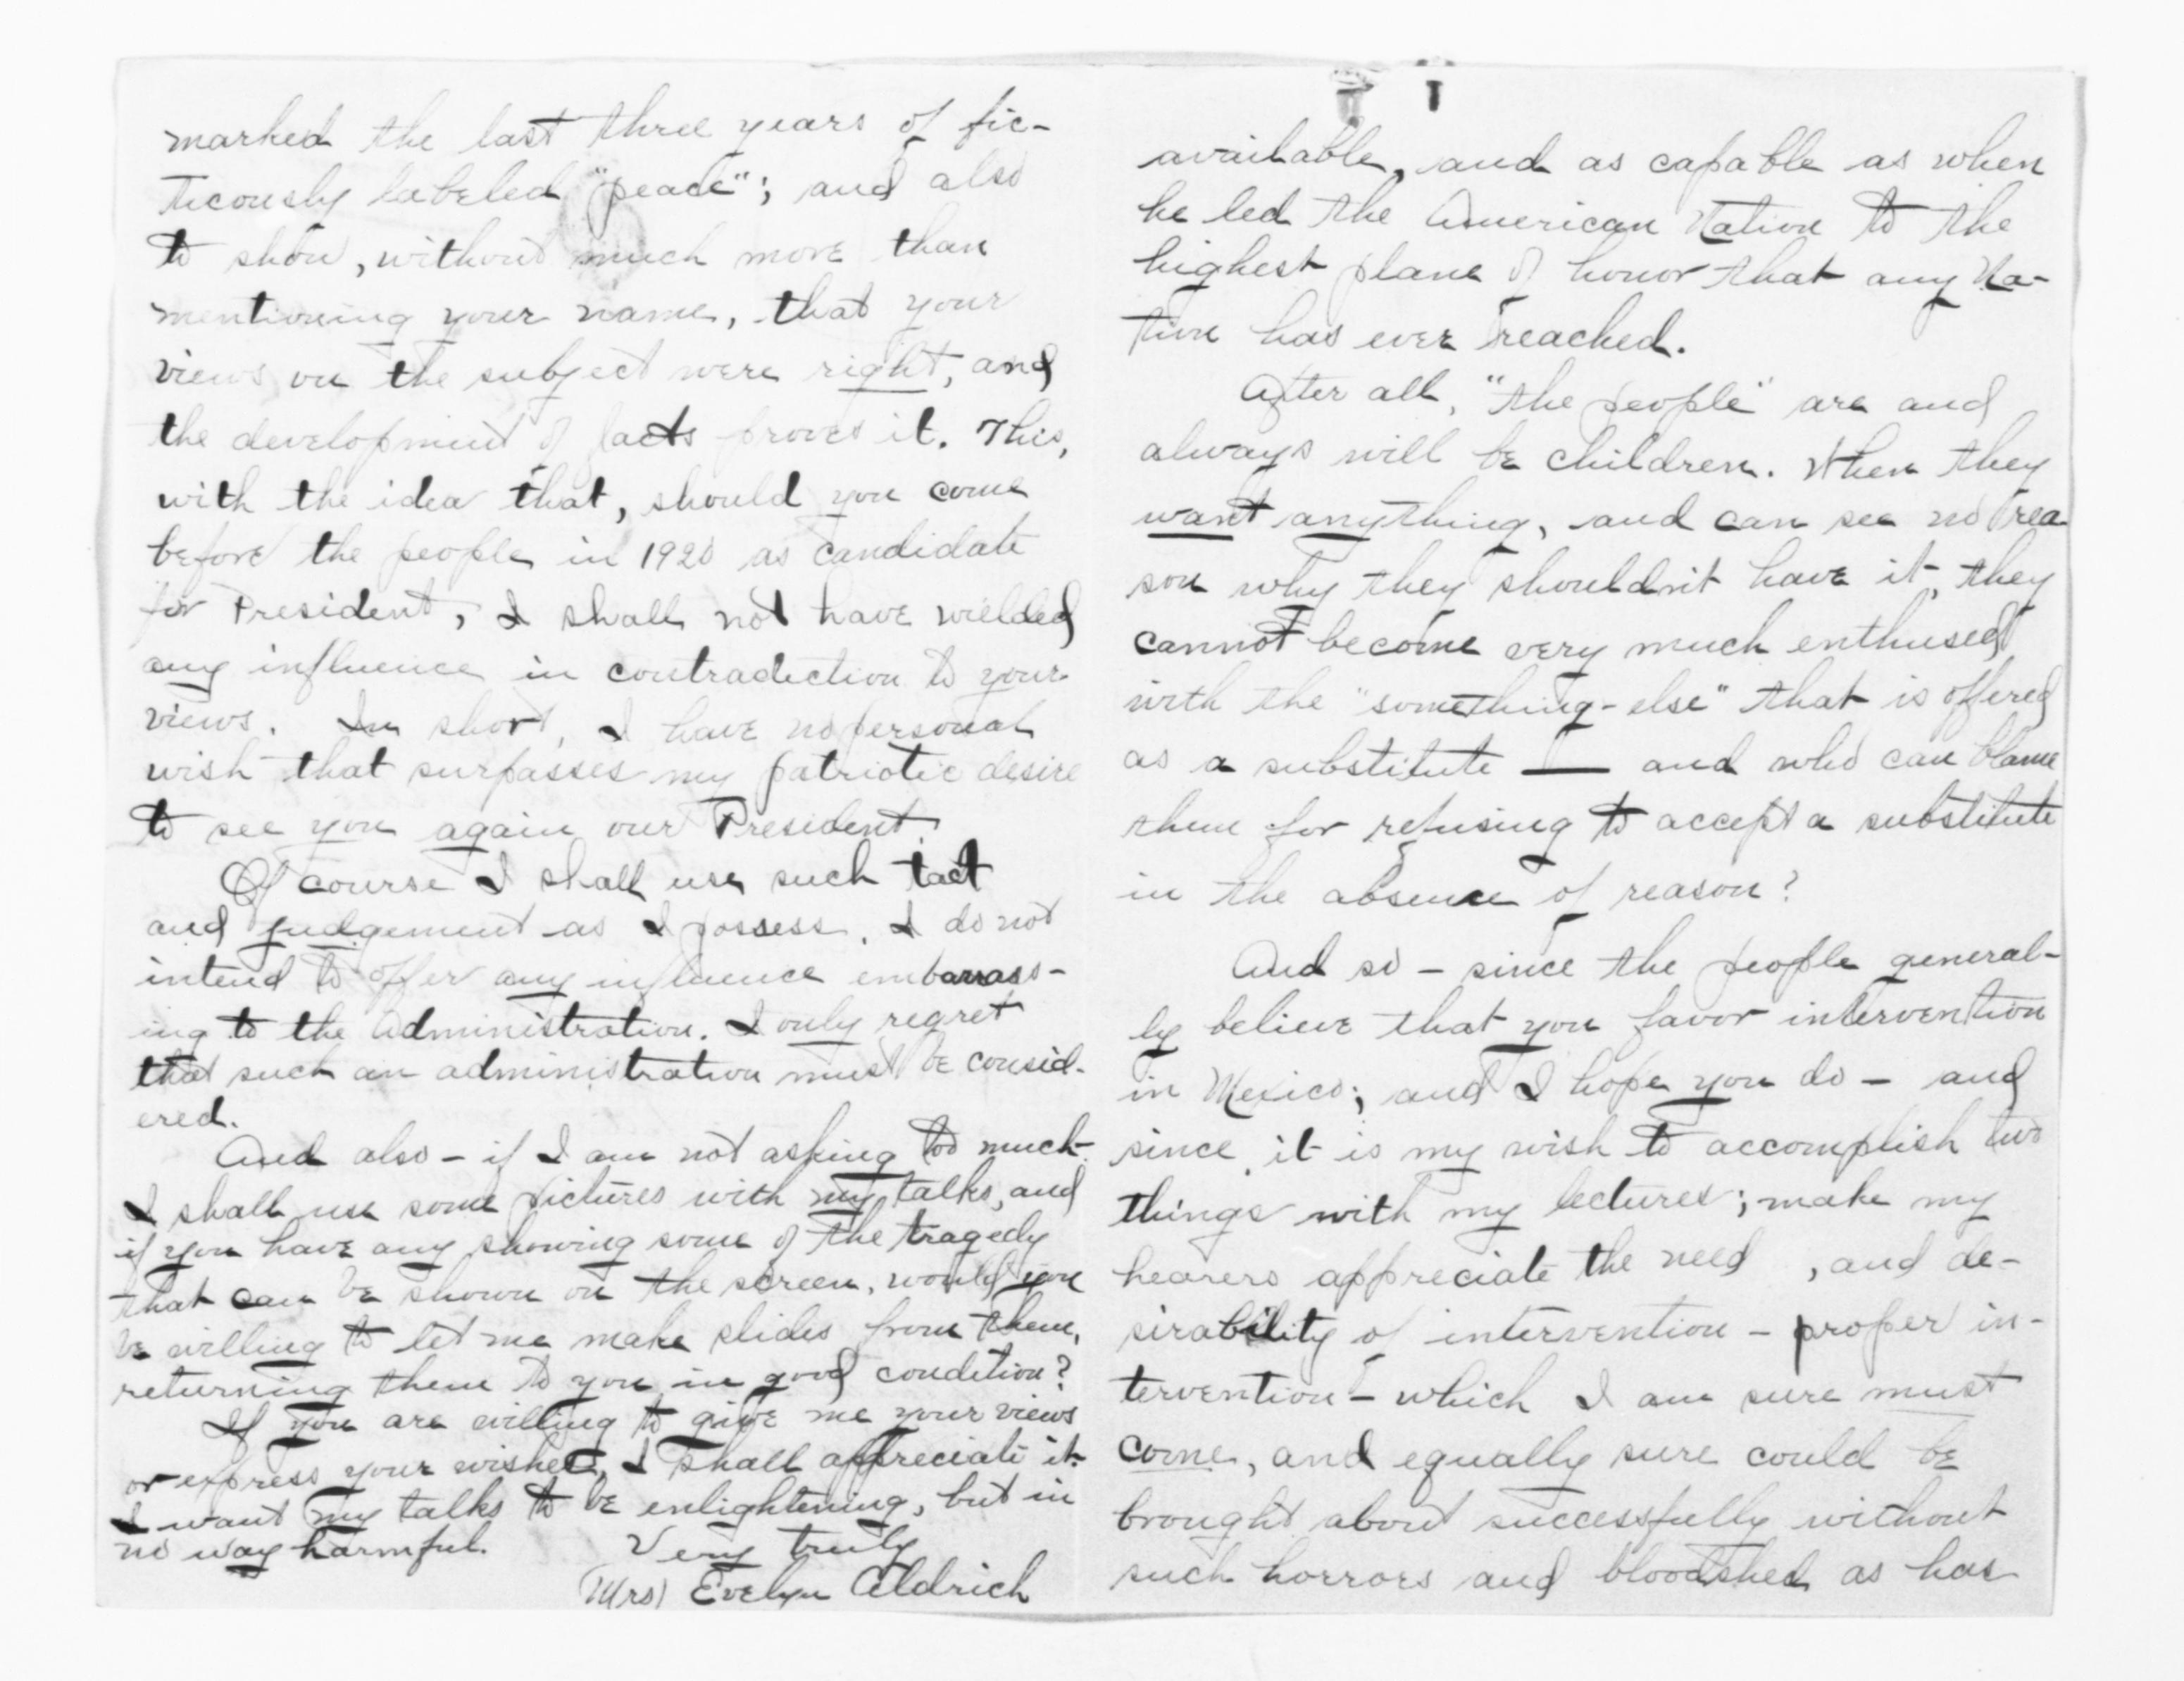 available, and as capable as when
he led the American Nation to the
highest plane of honor that any Na-
tion has ever reached.
After all, "the people" are and
always will be children. When they
want anything, and can see no rea
son why they shouldn't have it, they
cannot become very much enthused
with the "something-else" that is offered
as a substitute — and who can blame
them for refusing to accept a substitute
in the absence of reason?
And so - since the people general-
ly believe that you favor intervention
in Mexico; and I hope you do - and
since it is my wish to accomplish two
things with my lectures; make my
hearers appreciate the need , and de-
sirability of intervention - proper in-
tervention - which I am sure must
come, and equally sure could be
brought about successfully without
such horrors and bloodshed as has
marked the last three years of fic-
ticously labeled "peace"; and also
to show, without much more than
mentioning your name, that your
views on the subject were right, and
the development of facts proves it. This,
with the idea that, should you come
before the people in 1920 as candidate
for President, I shall not have wielded
any influence in contradiction to your
views. In short, I have no personal
wish that surpasses my patriotic desire
to see you again our President.
Of course I shall use such tact
and judgement as I possess. I do not
intend to offer any influence embarrass-
ing to the Administration. I only regret
that such an administration must be consid-
ered.
And also - if I am not asking too much -
I shall use some pictures with my talks, and
if you have any showing some of the tragedy
that can be shown on the screen, would you
be willing to let me make slides from them,
returning them to you in good condition?
If you are willing to give me your views
or express your wishes, I shall appreciate it.
I want my talks to be enlightening, but in
no way harmful.
Very truly
(Mrs) Evelyn Aldrich